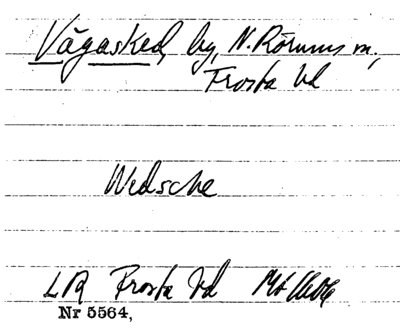 Vågasked, by, N. Rörums m,
Frosta hd
Wedsche
LR Frosta hd
Nr 5564,